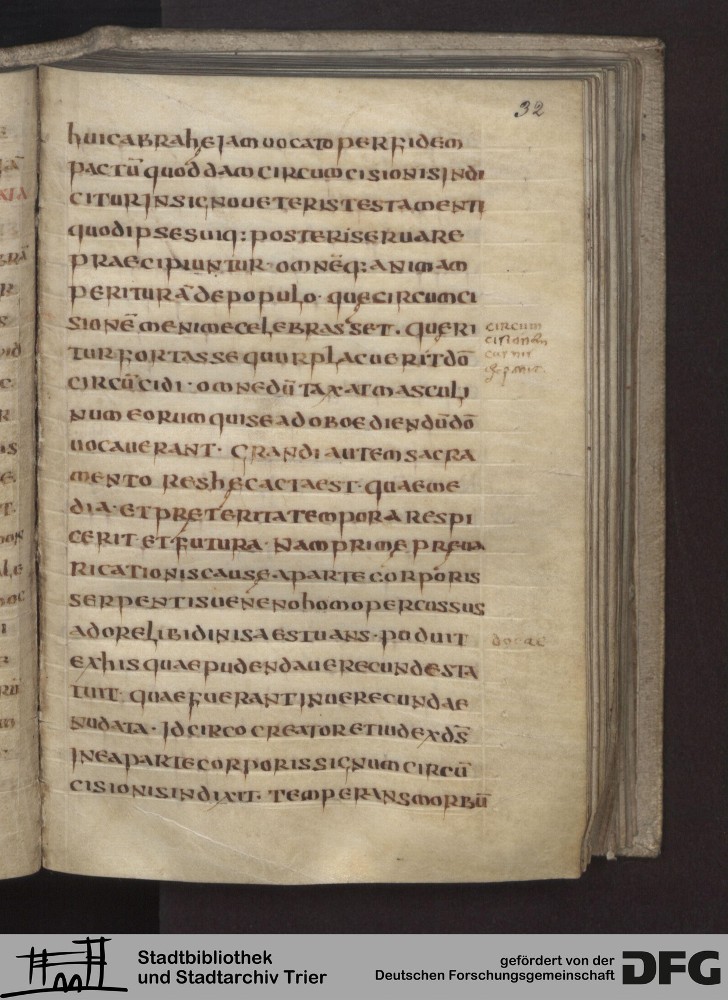 32
huic abrahe jam uocato per fidem
pactū quoddam circumcisionis indi
citur in signo ueteris testamenti
quod ipse suiq: posteri seruare
praecipiuntur. omnēq: animam
periturā de populo. que circumci
sionē menime celebrasset. queri
tur fortasse quur placuerit dō
circūcidi. omne dūtaxat masculi
num eorum qui se ad oboediendū dō
uocauerant. Grandi autem sacra
mento res hec acta est. quae me
dia. et preterita tempora respi
cerit et futura. Nam prime preua
ricationis cause. a parte corporis
serpentis ueneno homo percussus
ador e libidinis aestuans. poduit
ex his quae pudenda uerecundesta
tuit. quae fuerant inuerecundae
nudata. Idcirco creator et iudex dš
In ea parte corporis signum circū
cisionis indixit. Temperans morbū
circum
cisionem
docae
Stadtbibliothek
und Stadtarchiv Trier
gefördert von der
Deutschen Forschungsgemeinschaft
DFG